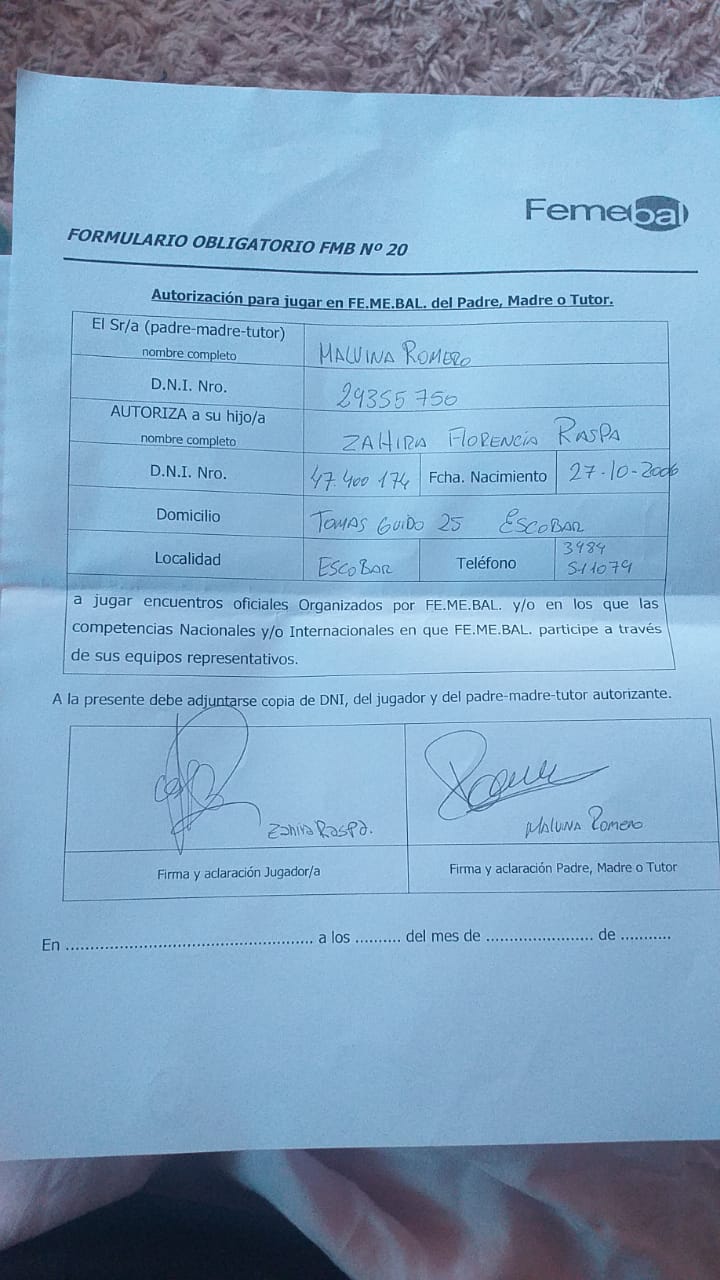 Femebal
FORMULARIO OBLIGATORIO FMB Nº 20
Autorización para jugar en FE.ME.BAL. del Padre, Madre o Tutor.
El Sr/a (padre-madre-tutor)
nombre completo
MALVINA ROMERO
D.N.I. Nro.
29355 750
AUTORIZA a su hijo/a
nombre completo
ZAHIRA FLORENCIA RASPA
D.N.I. Nro.
47.400 174
Fcha. Nacimiento
27-10-2006
Domicilio
TOMAS GUIDO 25 ESCOBAR
Localidad
ESCOBAR
Teléfono
3484
511079
a jugar encuentros oficiales Organizados por FE.ME.BAL. y/o en los que las
competencias Nacionales y/o Internacionales en que FE.ME.BAL. participe a través
de sus equipos representativos.
A la presente debe adjuntarse copia de DNI, del jugador y del padre-madre-tutor autorizante.
Zahira Raspa.
MALVINA Romero
Firma y aclaración Jugador/a
Firma y aclaración Padre, Madre o Tutor
En .................................................. a los .......... del mes de ...................... de ...........